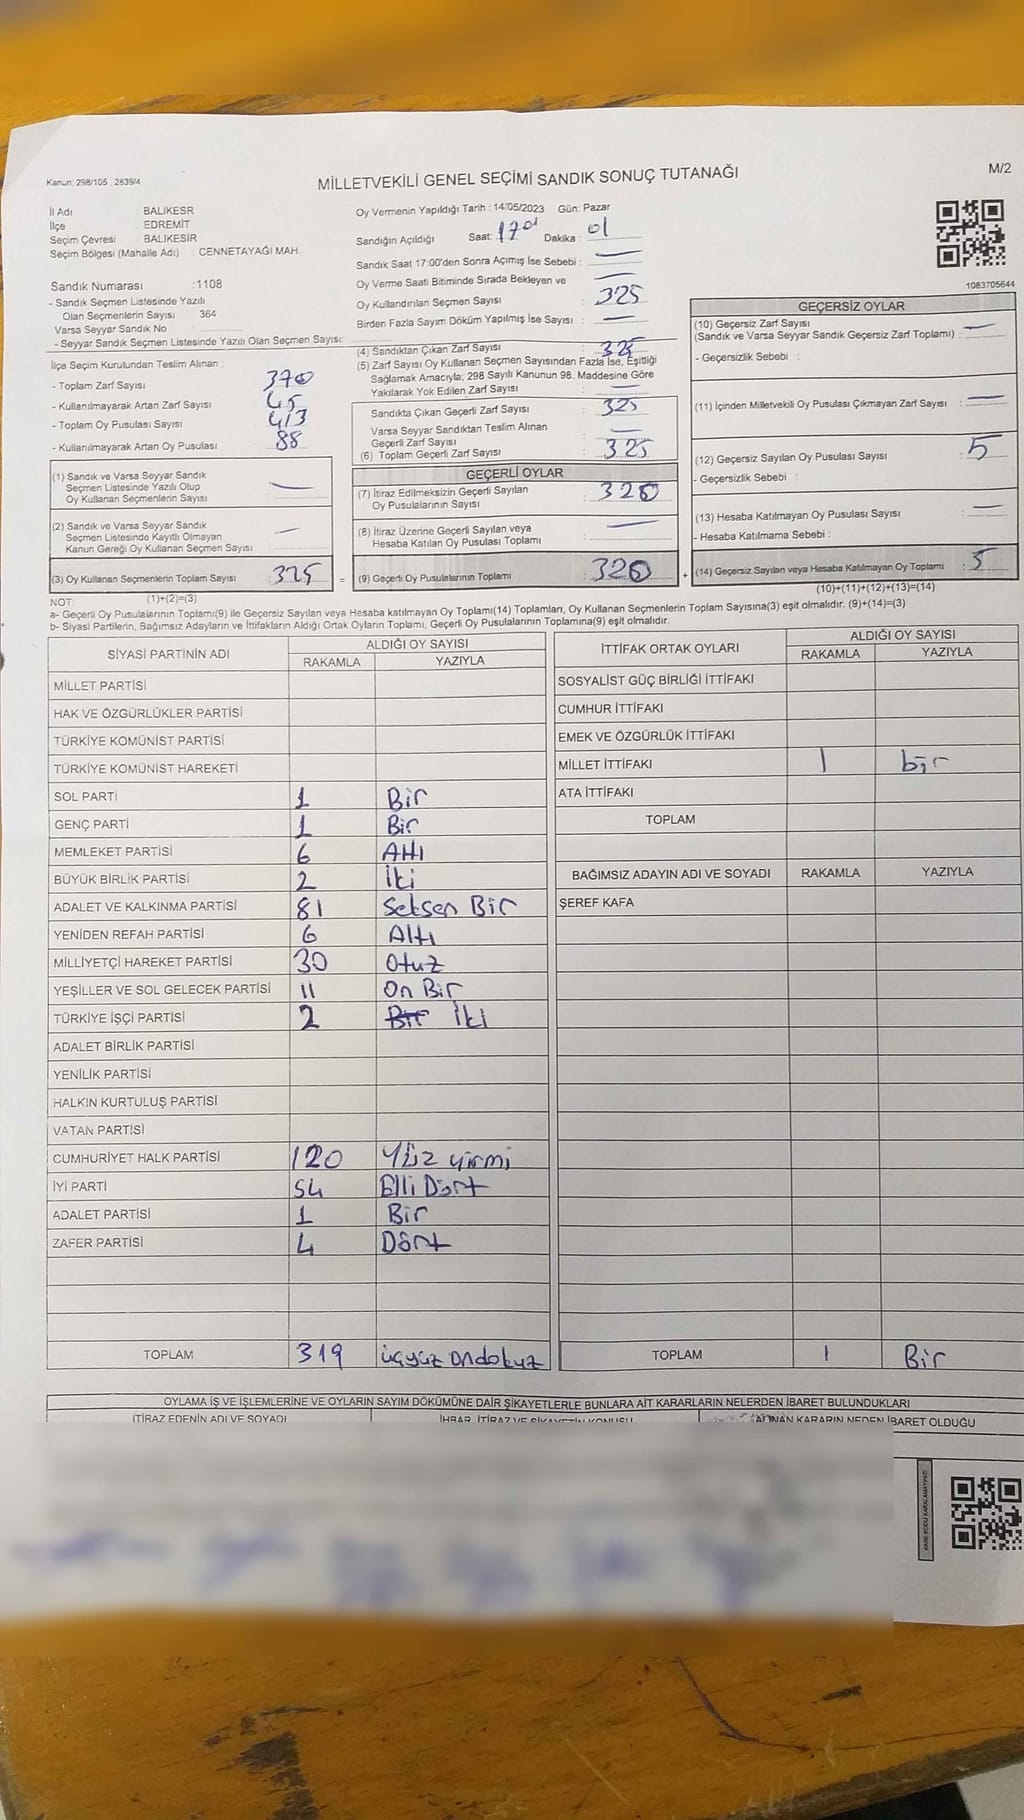 Kanun; 298/105 , 2839/4
MİLLETVEKİLİ GENEL SEÇİMİ SANDIK SONUÇ TUTANAĞI
M/2
İl Adı : BALIKESR
İlçe : EDREMİT
Seçim Çevresi : BALIKESİR
Seçim Bölgesi (Mahalle Adı) : CENNETAYAĞI MAH.
Sandık Numarası : 1108
- Sandık Seçmen Listesinde Yazılı
Olan Seçmenlerin Sayısı 364
Varsa Seyyar Sandık No :
- Seyyar Sandık Seçmen Listesinde Yazılı Olan Seçmen Sayısı:
İlçe Seçim Kurulundan Teslim Alınan ;
- Toplam Zarf Sayısı 370
- Kullanılmayarak Artan Zarf Sayısı 45
- Toplam Oy Pusulası Sayısı 413
- Kullanılmayarak Artan Oy Pusulası : 88
(1) Sandık ve Varsa Seyyar Sandık
Seçmen Listesinde Yazılı Olup
Oy Kullanan Seçmenlerin Sayısı : —
(2) Sandık ve Varsa Seyyar Sandık
Seçmen Listesinde Kayıtlı Olmayan
Kanun Gereği Oy Kullanan Seçmen Sayısı : —
(3) Oy Kullanan Seçmenlerin Toplam Sayısı : 325 =
(1)+(2)=(3)
Oy Vermenin Yapıldığı Tarih : 14/05/2023 Gün: Pazar
Sandığın Açıldığı Saat: 17 Dakika : 01
Sandık Saat 17:00'den Sonra Açımış İse Sebebi : —
Oy Verme Saati Bitiminde Sırada Bekleyen ve —
Oy Kullandırılan Seçmen Sayısı : 325
Birden Fazla Sayım Döküm Yapılmış İse Sayısı : —
(4) Sandıktan Çıkan Zarf Sayısı : 325
(5) Zarf Sayısı Oy Kullanan Seçmen Sayısından Fazla İse, Eşitliği
Sağlamak Amacıyla; 298 Sayılı Kanunun 98. Maddesine Göre
Yakılarak Yok Edilen Zarf Sayısı : —
Sandıkta Çıkan Geçerli Zarf Sayısı : 325
Varsa Seyyar Sandıktan Teslim Alınan
Geçerli Zarf Sayısı : —
(6) Toplam Geçerli Zarf Sayısı : 325
GEÇERLİ OYLAR
(7) İtiraz Edilmeksizin Geçerli Sayılan
Oy Pusulalarının Sayısı : 320
(8) İtiraz Üzerine Geçerli Sayılan veya
Hesaba Katılan Oy Pusulası Toplamı : —
(9) Geçerli Oy Pusulalarının Toplamı : 320 +
1083705644
GEÇERSİZ OYLAR
(10) Geçersiz Zarf Sayısı
(Sandık ve Varsa Seyyar Sandık Geçersiz Zarf Toplamı) : —
- Geçersizlik Sebebi :
(11) İçinden Milletvekili Oy Pusulası Çıkmayan Zarf Sayısı : —
(12) Geçersiz Sayılan Oy Pusulası Sayısı : 5
- Geçersizlik Sebebi :
(13) Hesaba Katılmayan Oy Pusulası Sayısı : —
- Hesaba Katılmama Sebebi :
(14) Geçersiz Sayılan veya Hesaba Katılmayan Oy Toplamı : 5
(10)+(11)+(12)+(13)=(14)
NOT:
a- Geçerli Oy Pusulalarının Toplamı(9) ile Geçersiz Sayılan veya Hesaba katılmayan Oy Toplamı(14) Toplamları, Oy Kullanan Seçmenlerin Toplam Sayısına(3) eşit olmalıdır. (9)+(14)=(3)
b- Siyasi Partilerin, Bağımsız Adayların ve İttifakların Aldığı Ortak Oyların Toplamı, Geçerli Oy Pusulalarının Toplamına(9) eşit olmalıdır.
SİYASİ PARTİNİN ADI ALDIĞI OY SAYISI
RAKAMLA YAZIYLA
MİLLET PARTİSİ
HAK VE ÖZGÜRLÜKLER PARTİSİ
TÜRKİYE KOMÜNİST PARTİSİ
TÜRKİYE KOMÜNİST HAREKETİ
SOL PARTİ 1 Bir
GENÇ PARTİ 1 Bir
MEMLEKET PARTİSİ 6 Altı
BÜYÜK BİRLİK PARTİSİ 2 İki
ADALET VE KALKINMA PARTİSİ 81 Seksen Bir
YENİDEN REFAH PARTİSİ 6 Altı
MİLLİYETÇİ HAREKET PARTİSİ 30 Otuz
YEŞİLLER VE SOL GELECEK PARTİSİ 11 On Bir
TÜRKİYE İŞÇİ PARTİSİ 2 Bir İki
ADALET BİRLİK PARTİSİ
YENİLİK PARTİSİ
HALKIN KURTULUŞ PARTİSİ
VATAN PARTİSİ
CUMHURİYET HALK PARTİSİ 120 Yüz yirmi
İYİ PARTİ 54 Elli Dört
ADALET PARTİSİ 1 Bir
ZAFER PARTİSİ 4 Dört
TOPLAM 319 üçyüz ondokuz
İTTİFAK ORTAK OYLARI ALDIĞI OY SAYISI
RAKAMLA YAZIYLA
SOSYALİST GÜÇ BİRLİĞİ İTTİFAKI
CUMHUR İTTİFAKI
EMEK VE ÖZGÜRLÜK İTTİFAKI
MİLLET İTTİFAKI 1 bir
ATA İTTİFAKI
TOPLAM
BAĞIMSIZ ADAYIN ADI VE SOYADI RAKAMLA YAZIYLA
ŞEREF KAFA
TOPLAM 1 Bir
OYLAMA İŞ VE İŞLEMLERİNE VE OYLARIN SAYIM DÖKÜMÜNE DAİR ŞİKAYETLERLE BUNLARA AİT KARARLARIN NELERDEN İBARET BULUNDUKLARI
İTİRAZ EDENİN ADI VE SOYADI İHBAR, İTİRAZ VE ŞİKAYETİN KONUSU ALINAN KARARIN NEDEN İBARET OLDUĞU